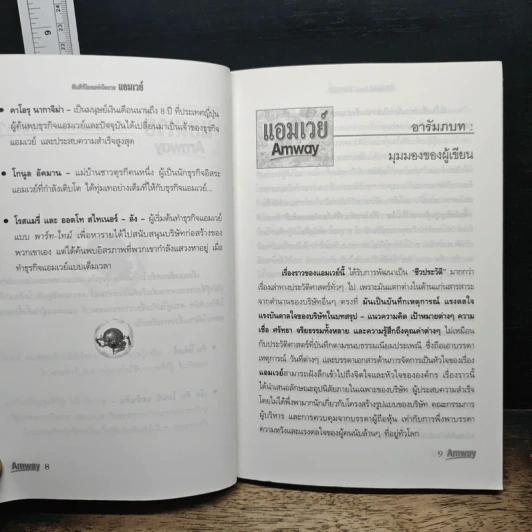 บันทึกโลกแห่งโอกาส แอมเวย์
• คาโอรุ นากาจิม่า – เป็นมนุษย์เงินเดือนนานถึง 8 ปี ที่ประเทศญี่ปุ่น
ผู้ค้นพบธุรกิจแอมเวย์และปัจจุบันได้เปลี่ยนมาเป็นเจ้าของธุรกิจ
แอมเวย์ และประสบความสำเร็จสูงสุด
• โกนูล อัคมาน – แม่บ้านชาวตุรกีคนหนึ่ง ผู้เป็นนักธุรกิจอิสระ
แอมเวย์ที่กำลังเติบโต ได้ทุ่มเทอย่างเต็มที่ให้กับธุรกิจแอมเวย์...
• โรสแมรี่ และ ออตโท สไทเนอร์ - ลัง – ผู้เริ่มต้นทำธุรกิจแอมเวย์
แบบ พาร์ท-ไทม์ เพื่อหารายได้ไปสนับสนุนบริษัทก่อสร้างของ
พวกเขาเอง แต่ได้ค้นพบอิสรภาพที่พวกเขากำลังแสวงหาอยู่ เมื่อ
ทำธุรกิจแอมเวย์แบบเต็มเวลา
Amway 8
แอมเวย์
Amway
อารัมภบท :
มุมมองของผู้เขียน
เรื่องราวของแอมเวย์นี้ ได้รับการพัฒนาเป็น "ชีวประวัติ" มากกว่า
เรื่องเล่าทางประวัติศาสตร์ทั่วๆ ไป เพราะมันแตกต่างในด้านแก่นสารสาระ
จากตำนานของบริษัทอื่นๆ ตรงที่ มันเป็นบันทึกเหตุการณ์ แรงดลใจ
แรงบันดาลใจของบริษัทในบทสรุป – แนวความคิด เป้าหมายต่างๆ ความ
เชื่อ ศรัทธา จริยธรรมทั้งหลาย และความรู้สึกถึงคุณค่าต่างๆ ไม่เหมือน
กับประวัติศาสตร์ที่บันทึกตามขนบธรรมเนียมประเพณี ซึ่งถือเอาบรรดา
เหตุการณ์ วันที่ต่างๆ และบรรดาเอกสารด้านการจัดการเป็นหัวใจของเรื่อง
แอมเวย์สามารถฝังลึกเข้าไปถึงจิตใจและหัวใจขององค์กร เรื่องราวนี้
ได้นำเสนอลักษณะอุปนิสัยภายในเฉพาะของบริษัท ผู้ประสบความสำเร็จ
โดยไม่ได้พึ่งพามากนักเกี่ยวกับโครงสร้างรูปแบบของบริษัท คณะกรรมการ
ผู้บริหาร และการควบคุมจากบรรดาผู้ถือหุ้น เท่ากับการพึ่งพาบรรดา
ความหวังและแรงดลใจของผู้คนนับล้านๆ ที่อยู่ทั่วโลก
9 Amway
9